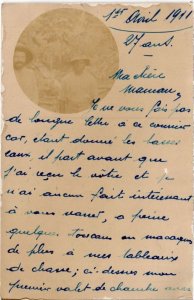 1er Avril 1911
27 ans.
Ma chère
Maman,
Je ne vous fais pas
de longue lettre à ce courrier
car, étant donné les basses
eaux, il part avant que
j'ai reçu la vôtre et je
n'ai aucun fait intéressant
à vous narrer, à peine
quelques toucans ou
de plus à mes tableaux
de chasse; ci-dessus mon
premier valet de chambre avec